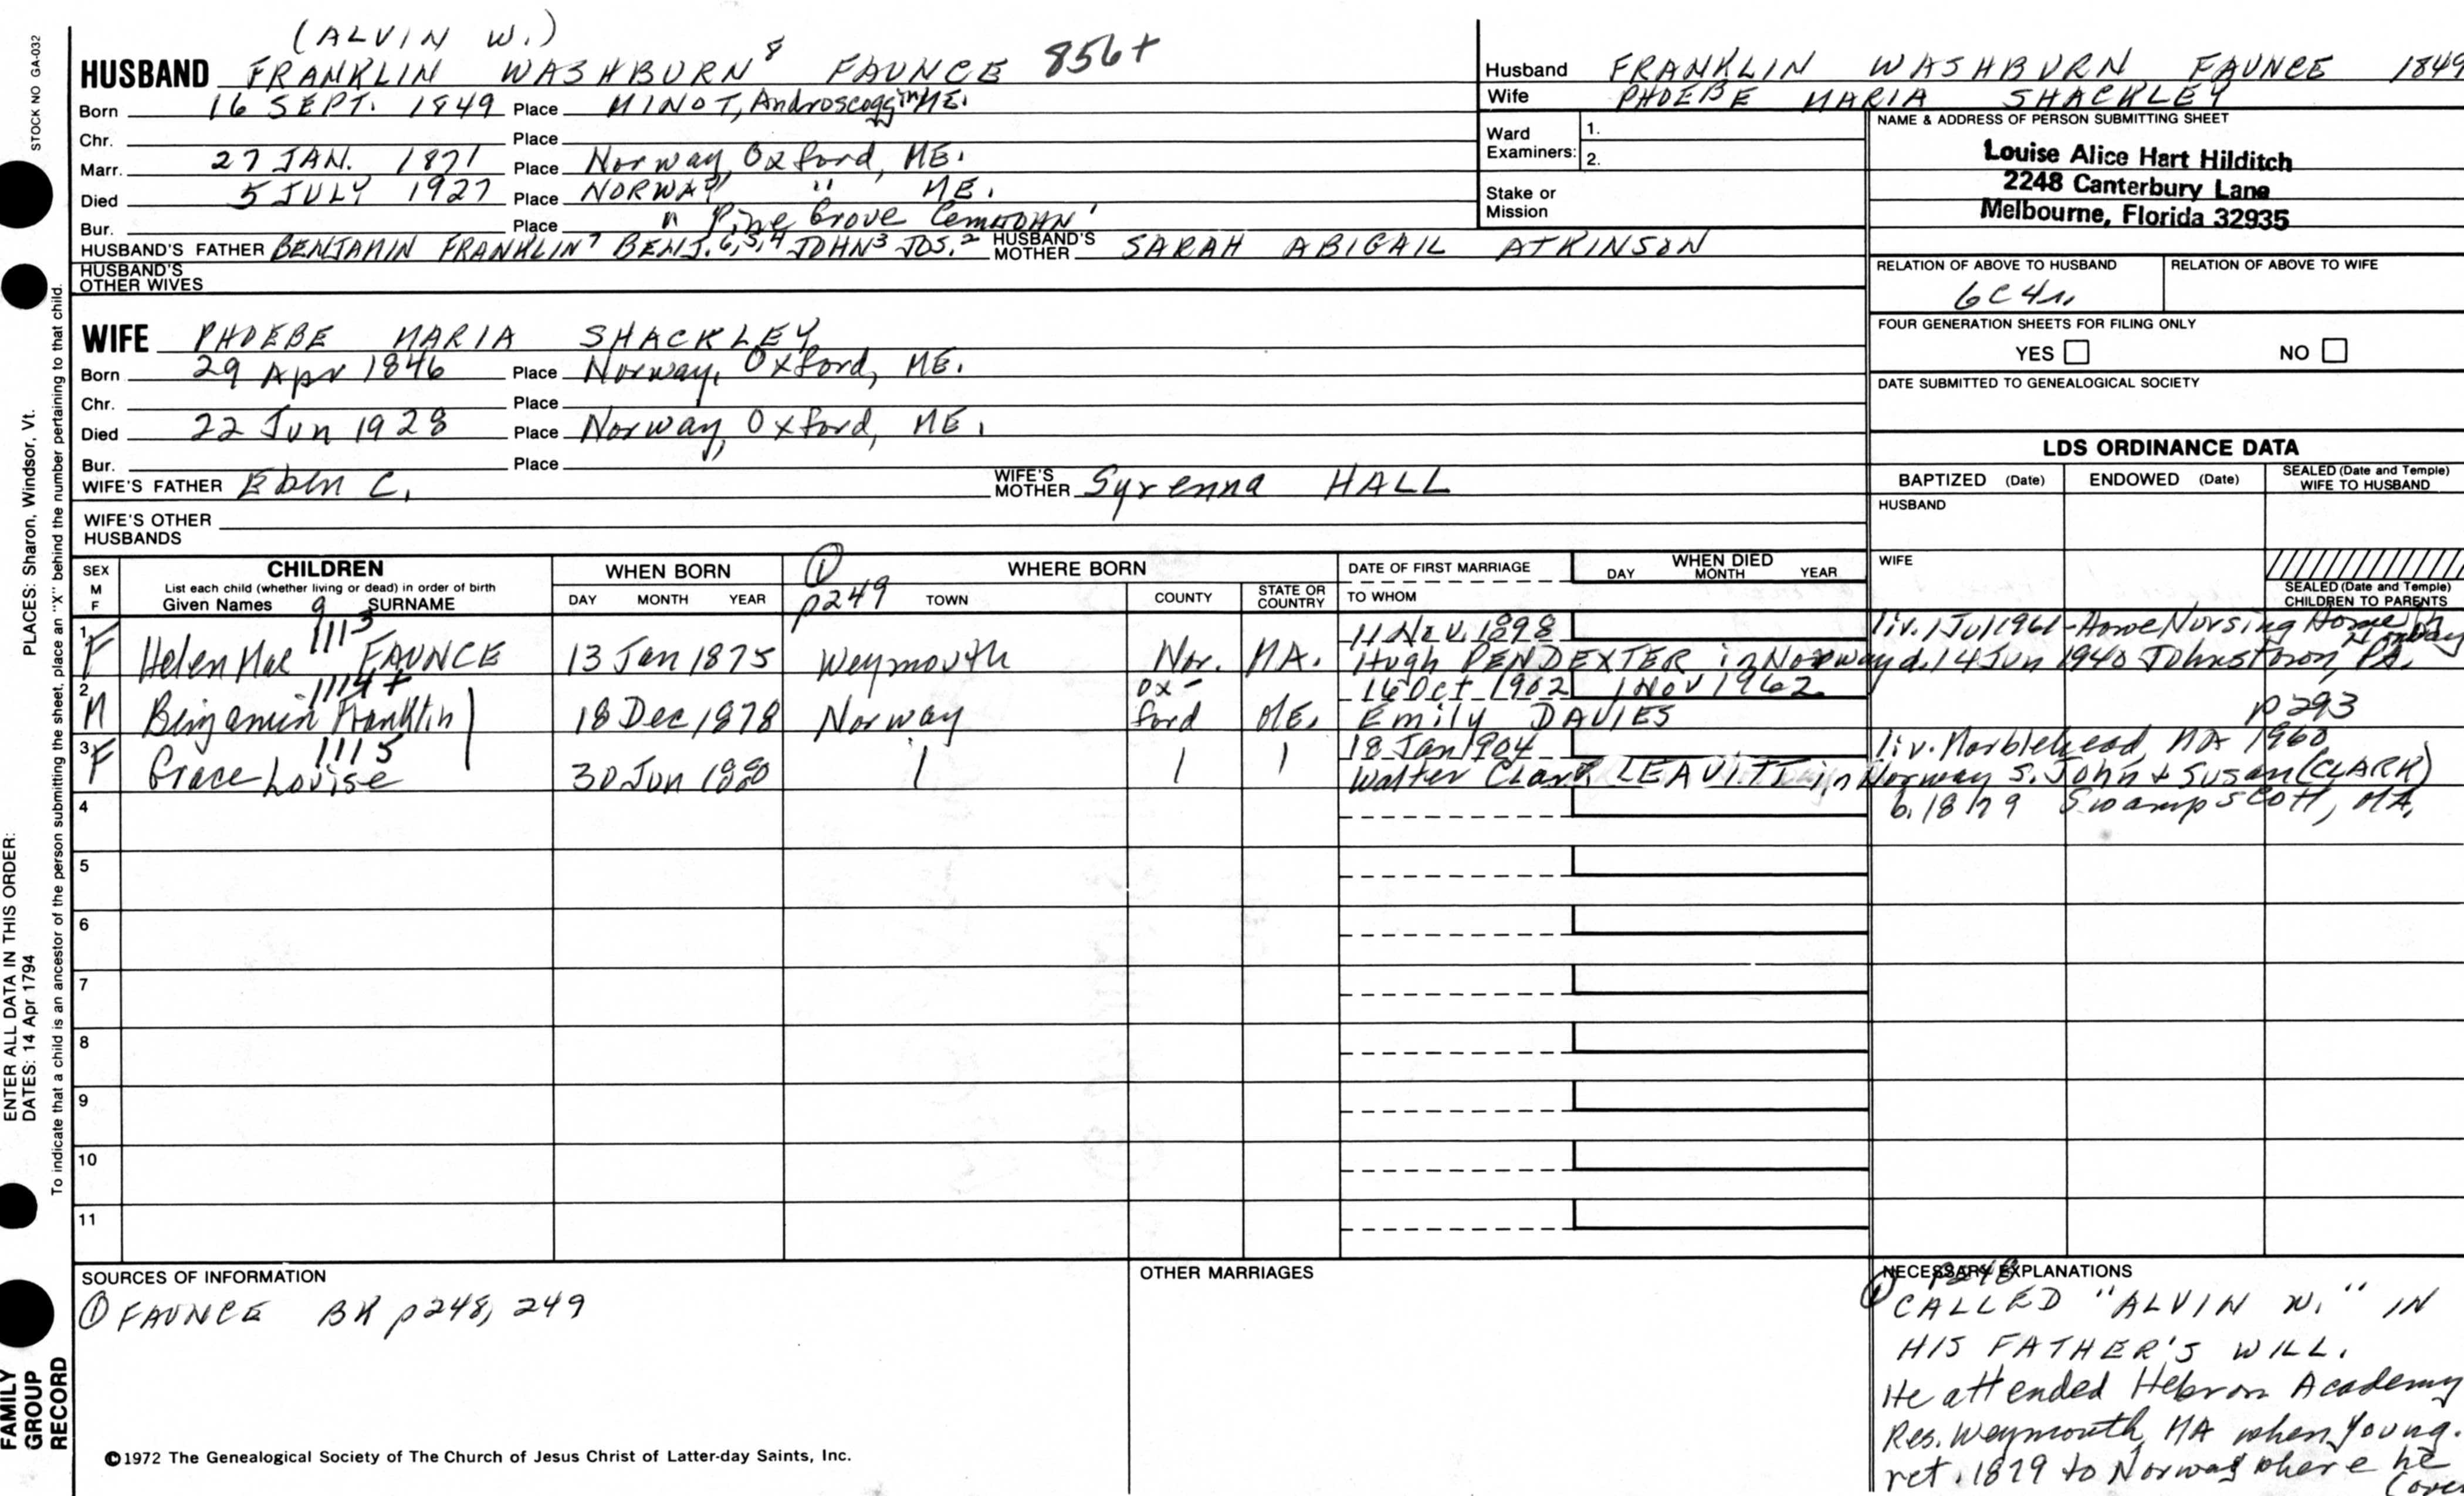 (ALVIN W.)
HUSBAND FRANKLIN WASHBURN 8 FAUNCE 856+
Born 16 SEPT. 1849 Place MINOT, Androscoggin ME.
Chr. Place
Marr. 27 JAN. 1871 Place Norway, Oxford, ME.
Died 5 JULY 1927 Place NORWAY " ME.
Bur. Place " Pine Grove Cem JOHN 1
HUSBAND'S FATHER BENJAMIN FRANKLIN 7 BENJ. 6,5,4 JOHN 3 JOS. 2 HUSBAND'S MOTHER SARAH ABIGAIL ATKINSON
HUSBAND'S OTHER WIVES
WIFE PHOEBE MARIA SHACKLEY
Born 29 Apr 1846 Place Norway, Oxford, ME.
Chr. Place
Died 22 Jun 1928 Place Norway, Oxford, ME.
Bur. Place
WIFE'S FATHER Eben C. WIFE'S MOTHER Syrenna HALL
WIFE'S OTHER HUSBANDS
Husband FRANKLIN WASHBURN FAUNCE 1849
Wife PHOEBE MARIA SHACKLEY
Ward Examiners: 1.
2.
Stake or Mission
NAME & ADDRESS OF PERSON SUBMITTING SHEET
Louise Alice Hart Hilditch
2248 Canterbury Lane
Melbourne, Florida 32935
RELATION OF ABOVE TO HUSBAND RELATION OF ABOVE TO WIFE
6C4r.
FOUR GENERATION SHEETS FOR FILING ONLY
YES NO
DATE SUBMITTED TO GENEALOGICAL SOCIETY
LDS ORDINANCE DATA
BAPTIZED (Date) ENDOWED (Date) SEALED (Date and Temple) WIFE TO HUSBAND
HUSBAND
WIFE
SEALED (Date and Temple) CHILDREN TO PARENTS
SEX M F CHILDREN WHEN BORN ① p249 WHERE BORN DATE OF FIRST MARRIAGE WHEN DIED
List each child (whether living or dead) in order of birth
Given Names 9 SURNAME DAY MONTH YEAR TOWN COUNTY STATE OR COUNTRY TO WHOM DAY MONTH YEAR
1 1113 11 Nov. 1898 liv. 1 Jul 1961 - Home Nursing Home in Norway
F Helen Mae FAUNCE 13 Jan 1875 Weymouth Nor. MA. Hugh PENDEXTER in Norway d. 14 Jun 1940 Johnstown, PA.
2 1114+ 16 Oct 1902 1 Nov 1962
M Benjamin Franklin 18 Dec 1878 Norway Ox-ford ME. Emily DAVIES p293
3 1115 18 Jan 1904 liv. Marblehead, MA 1960
F Grace Louise 30 Jun 1880 Walter Clark LEAVITT in Norway s. John & Susan (CLARK)
4 b. 1879 Swampscott, MA.
5
6
7
8
9
10
11
SOURCES OF INFORMATION
① FAUNCE BK p248, 249
OTHER MARRIAGES
NECESSARY EXPLANATIONS
① p248
CALLED "ALVIN W." IN
HIS FATHER'S WILL.
He attended Hebron Academy
Res. Weymouth, MA when young.
ret. 1879 to Norway where he
(over
©1972 The Genealogical Society of The Church of Jesus Christ of Latter-day Saints, Inc.
STOCK NO GA-032
PLACES: Sharon, Windsor, Vt.
To indicate that a child is an ancestor of the person submitting the sheet, place an "X" behind the number pertaining to that child.
ENTER ALL DATA IN THIS ORDER:
DATES: 14 Apr 1794
FAMILY
GROUP
RECORD